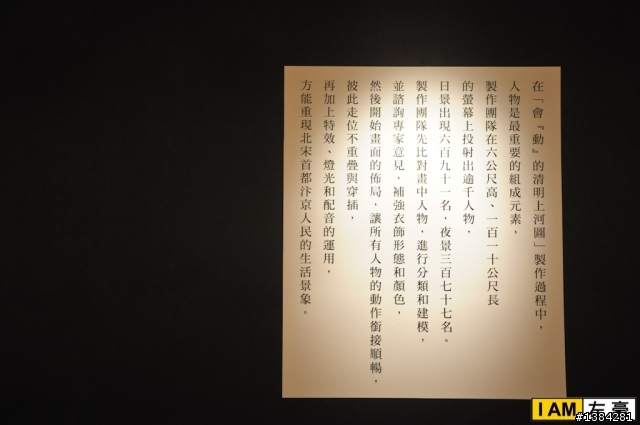 在「會『動』的清明上河圖」製作過程中，
人物是最重要的組成元素，
製作團隊在六公尺高、一百一十公尺長
的螢幕上投射出逾千人物，
日景出現六百九十一名，夜景三百七十七名。
製作團隊先比對畫中人物，進行分類和建模，
並諮詢專家意見，補強衣飾形態和顏色，
然後開始畫面的佈局，讓所有人物的動作銜接順暢，
彼此走位不重疊與穿插，
再加上特效、燈光和配音的運用，
方能重現北宋首都汴京人民的生活景象。
I AM 左亮
#1384281